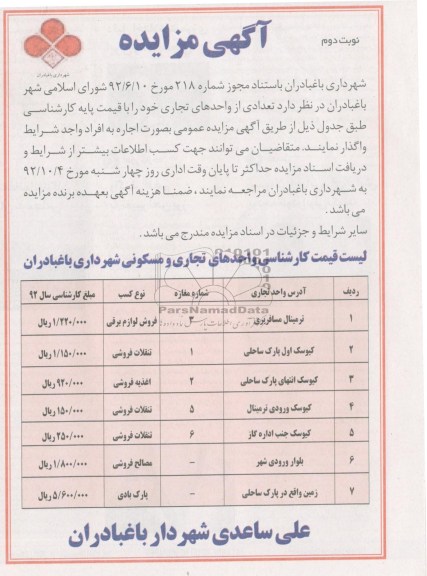 آگهی مزایده
نوبت دوم
شهرداری باغبادران
شهرداری باغبادران باستناد مجوز شماره ۲۱۸ مورخ ۹۲/۶/۱۰ شورای اسلامی شهر
باغبادران در نظر دارد تعدادی از واحدهای تجاری خود را با قیمت پایه کارشناسی
طبق جدول ذیل از طریق آگهی مزایده عمومی بصورت اجاره به افراد واجد شرایط
واگذار نمایند. متقاضیان می توانند جهت کسب اطلاعات بیشتر از شرایط و
دریافت اسناد مزایده حداکثر تا پایان وقت اداری روز چهار شنبه مورخ ۹۲/۱۰/۴
به شهرداری باغبادران مراجعه نمایند، ضمنا هزینه آگهی بعهده برنده مزایده
می باشد.
سایر شرایط و جزئیات در اسناد مزایده مندرج می باشد.
لیست قیمت کارشناسی واحدهای تجاری و مسکونی شهرداری باغبادران
ردیف آدرس واحد تجاری شماره مغازه نوع کسب مبلغ کارشناسی سال ۹۲
۱ ترمینال مسافربری ۳ فروش لوازم برقی ۱/۲۲۰/۰۰۰ ریال
ParsNamadData
۲ کیوسک اول پارک ساحلی ۱ تنقلات فروشی ۱/۱۵۰/۰۰۰ ریال
۳ کیوسک انتهای پارک ساحلی ۲ اغذیه فروشی ۹۲۰/۰۰۰ ریال
۴ کیوسک ورودی ترمینال ۵ تنقلات فروشی ۱۵۰/۰۰۰ ریال
۵ کیوسک جنب اداره گاز ۶ تنقلات فروشی ۲۵۰/۰۰۰ ریال
۶ بلوار ورودی شهر - مصالح فروشی ۱/۸۰۰/۰۰۰ ریال
۷ زمین واقع در پارک ساحلی - پارک بادی ۵/۶۰۰/۰۰۰ ریال
علی ساعدی شهردار باغبادران